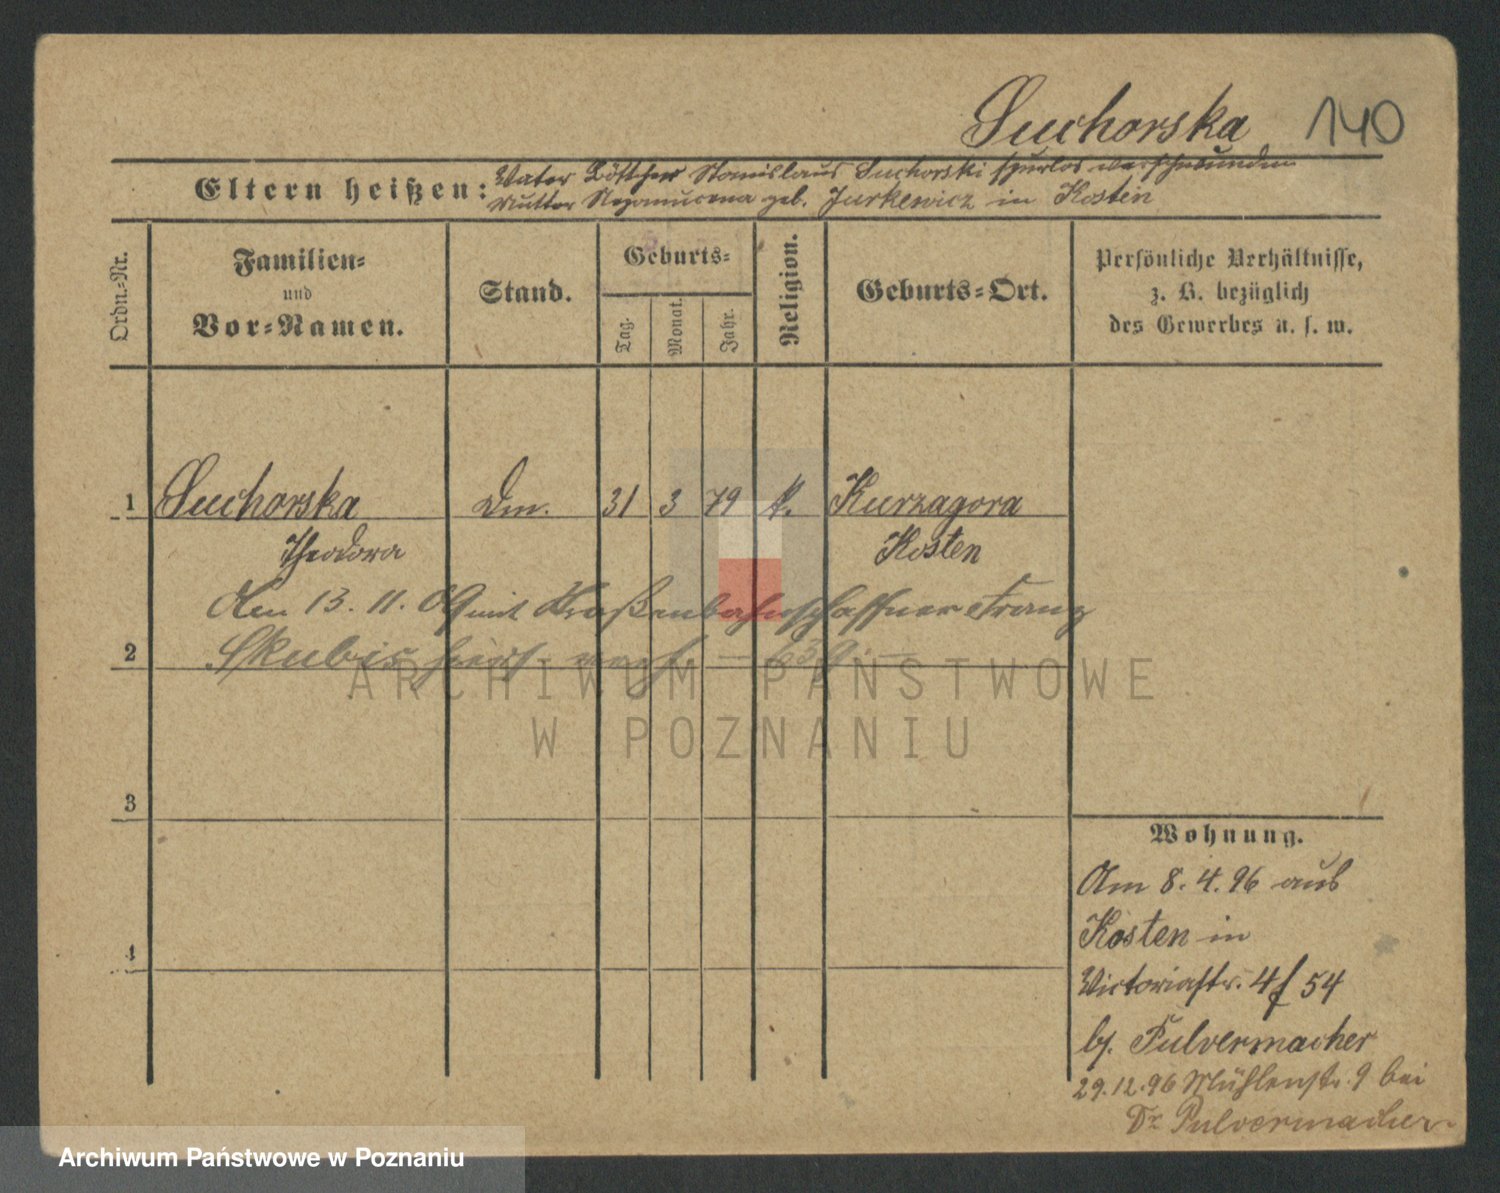 Suchorska 140
Eltern heißen: Vater Böttcher Stanislaus Suchorski spurlos verschwunden
Mutter Nepomucena geb. Jurkewicz in Kosten
Ordn.-Nr.
Familien-
und
Vor-Namen.
Stand.
Geburts-
Tag.
Monat.
Jahr.
Religion.
Geburts-Ort.
Persönliche Verhältnisse,
z. B. bezüglich
des Gewerbes u. s. w.
1 Suchorska Dm. 31 3 79 k. Kurzagora
Theodora Kosten
Am 13. 11. 09 mit Straßenbahnschaffner Franz
2 Skubis hier verh 639
3
4
Wohnung.
Am 8. 4. 96 aus
Kosten in
Victoriastr. 4 f 54
bj. Pulvermacher
29.12.96 Mühlenstr. 9 bei
Dr Pulvermacher
ARCHIWUM PAŃSTWOWE
W POZNANIU
Archiwum Państwowe w Poznaniu